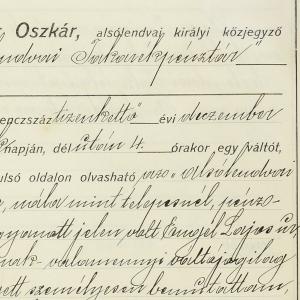 Oszkár, alsólendvai királyi közjegyző
Takarékpénztár"
enczszáz tizenkettő évi deczember
napján, dél után 4. órakor egy váltót,
ulsó oldalon olvasható azo alsólendvai
nála mint telepesnél, pénz-
jelen volt Engel Lajos úr,
valamennyi váltójogilag
ett személyesen bemutattam,